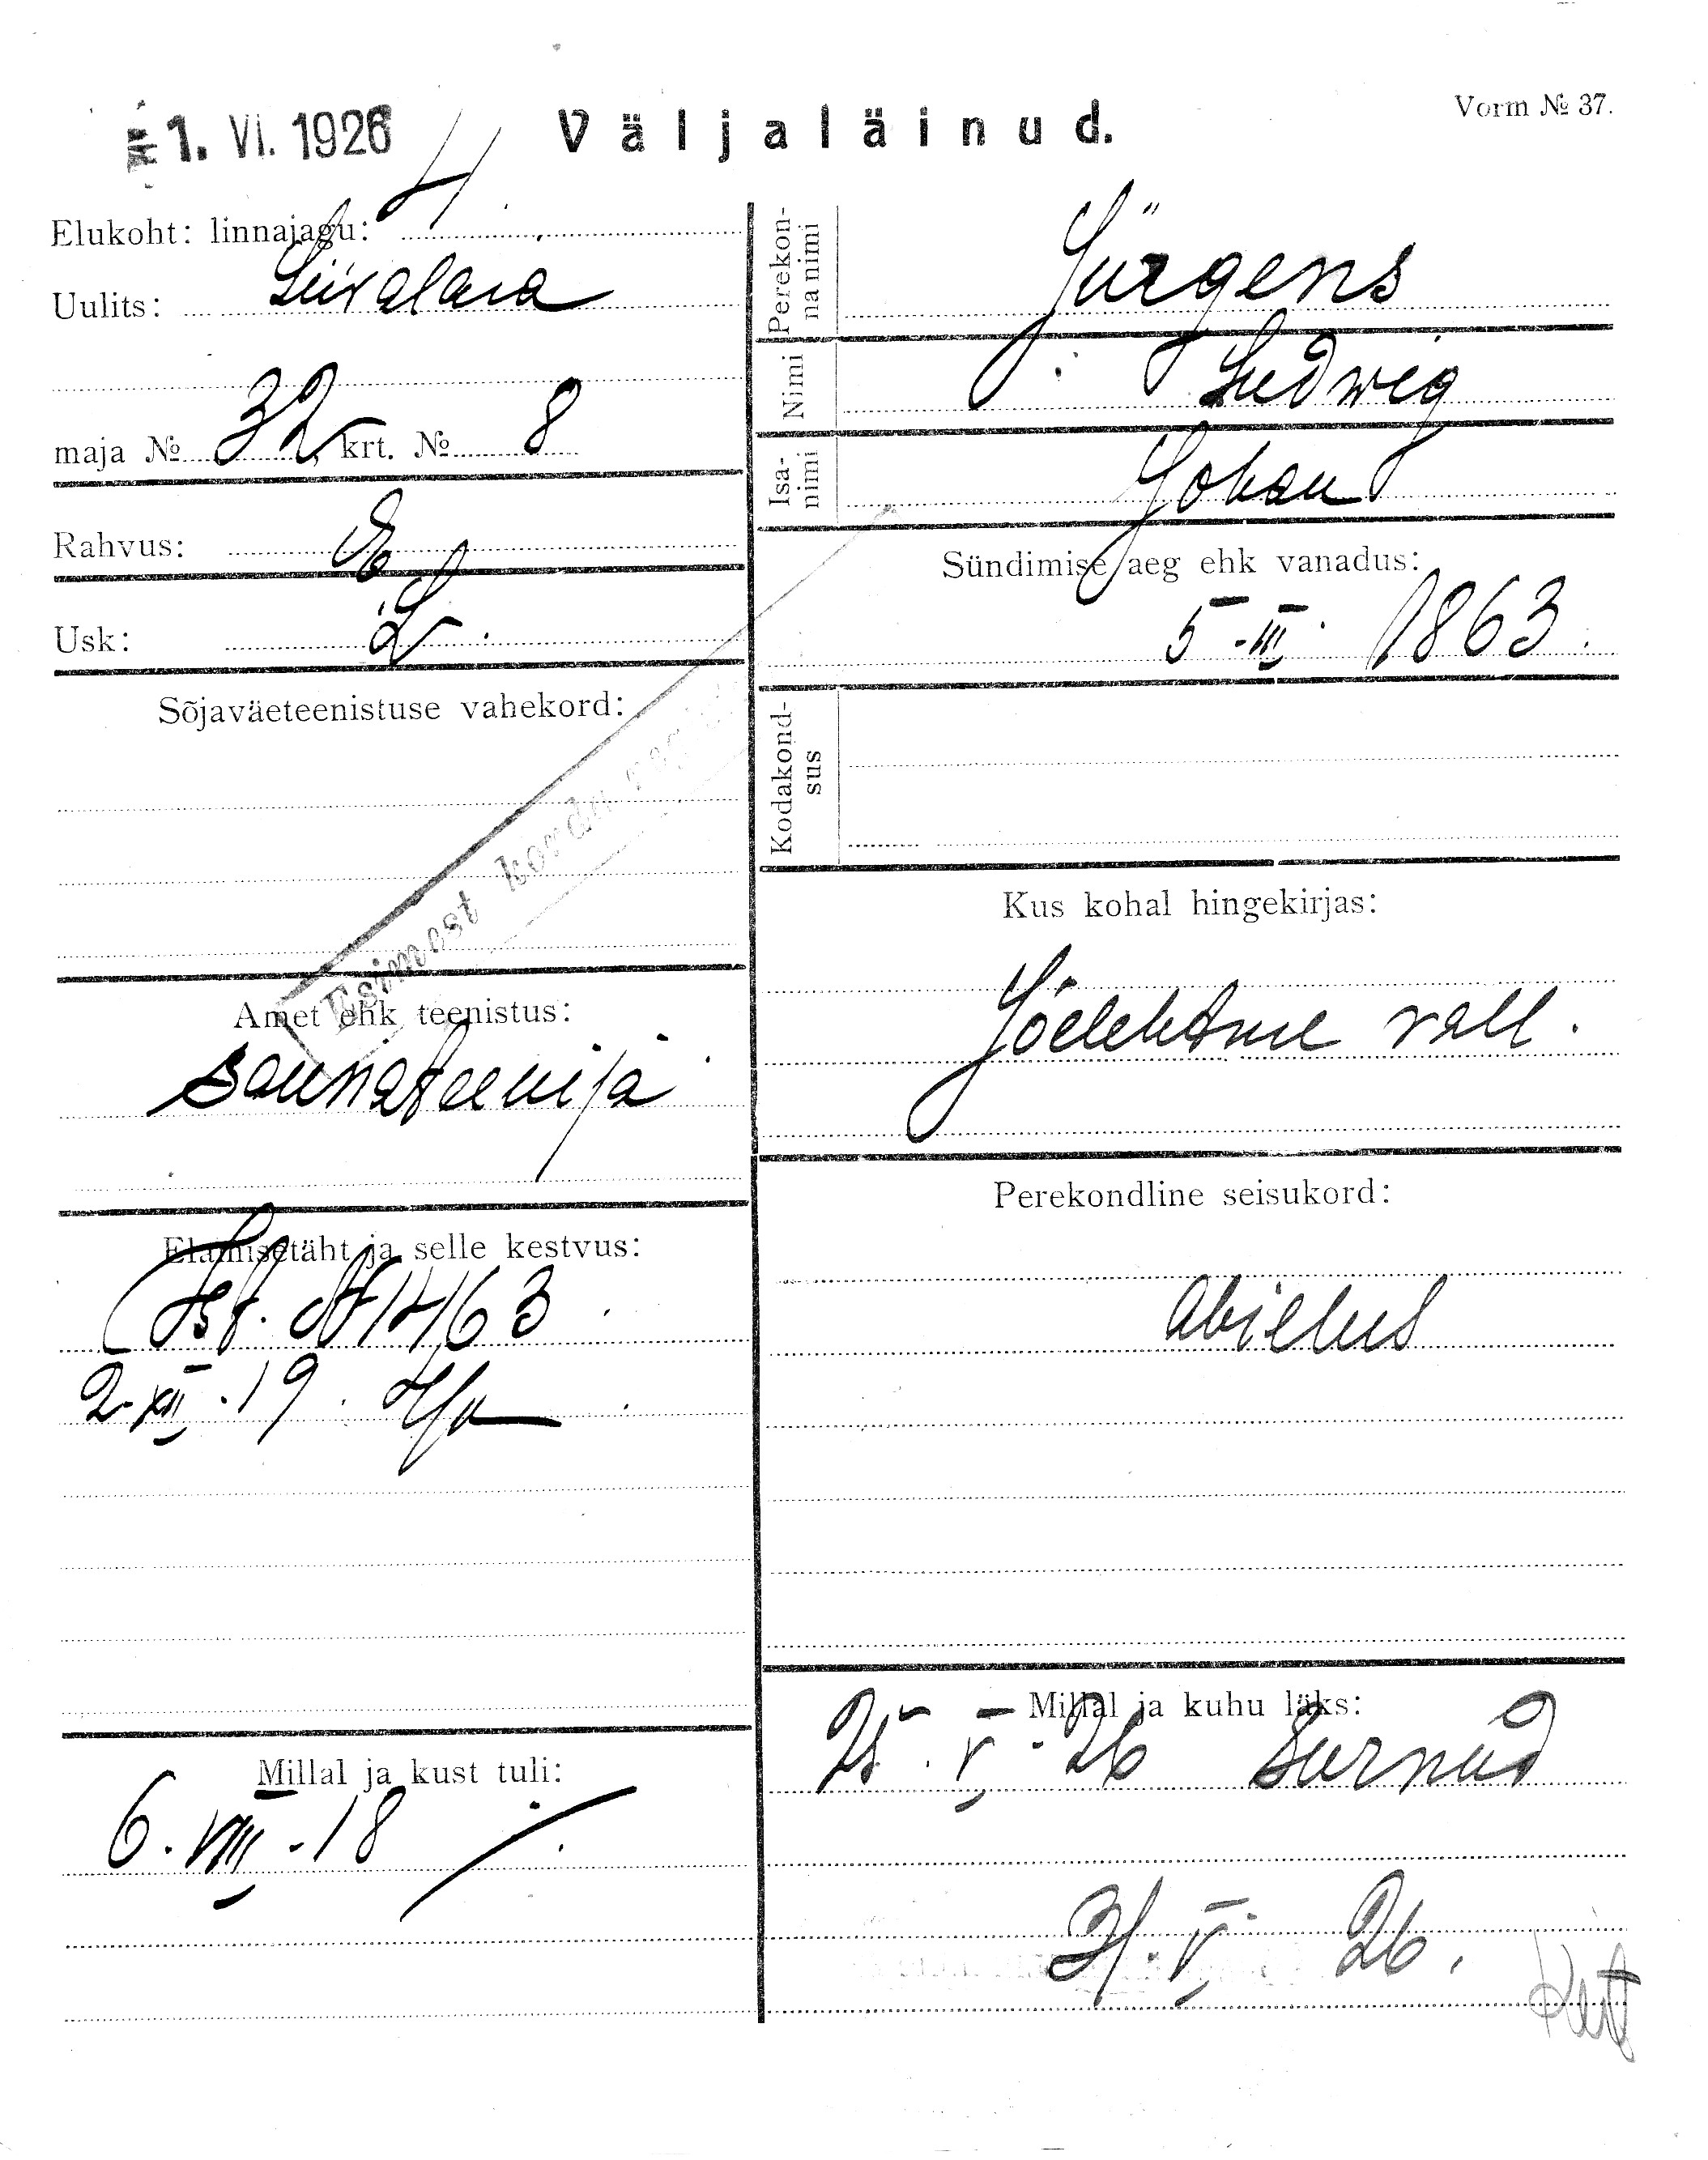 1. VI. 1926
Väljaläinud.
Vorm № 37.
Elukoht: linnajagu: 4.
Uulits: Liivalaia
maja № 32, krt. № 8
Rahvus: E
Usk: L.
Sõjaväeteenistuse vahekord:
Esimest korda
Amet ehk teenistus:
saunateenija
Elamisetäht ja selle kestvus:
№ 14163
2.XII.19.
Millal ja kust tuli:
6.VIII.18
Perekonna nimi
Jürgens
Nimi
Ludwig
Isa-
nimi
Johan
Sündimise aeg ehk vanadus:
5.III.1863.
Kodakond-
sus
Kus kohal hingekirjas:
Jõelehtme vall.
Perekondline seisukord:
abielus
Millal ja kuhu läks:
25.V.26 surnud
31.V.26.